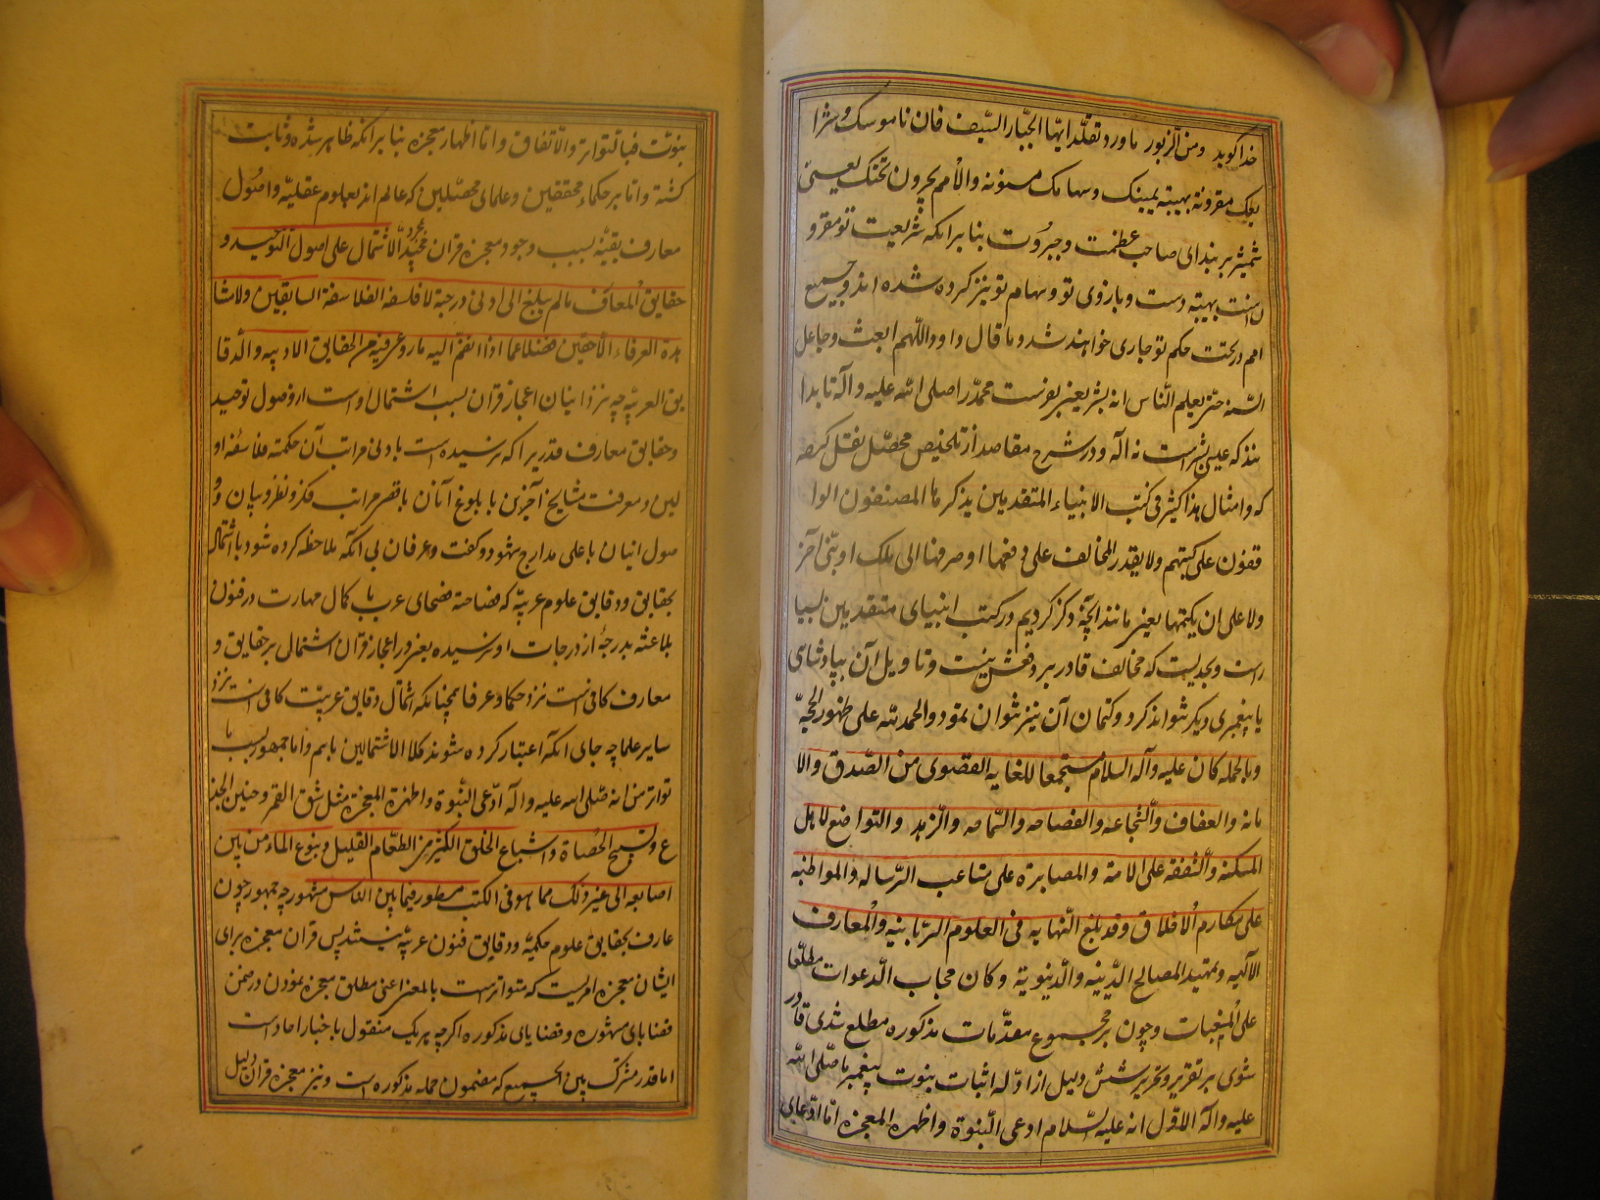 خدا کوید ومن الزبور ما ورد تقلّد ایّها الجبّار السّیف فان ناموسک وشرا
یعک مقرونة بهیبة یمینک وسهامک مسنونة والامم یجرون تحتک یعنی
شمشیر بر بند ای صاحب عظمت وجبروت بنا بر انکه شریعت تو مقرو
ن است بهیبة دست وبازوی تو وسهام تو تیز کرده شده اند وجمیع
امم در تحت حکم تو جاری خواهند شد وما قال داود اللّهم ابعث وجاعل
السّنة حتّی یعلم النّاس انه بشر یعنی بفرست محمّد را صلی الله علیه وآله تا بدا
نند که عیسی بشر است نه اله ودر شرح مقاصد از تلخیص محصّل نقل کرده
که وامثال هذا کثیر فی کتب الانبیاء المتقدمین یذکرها المصنفون الوا
قفون علی کتبهم ولا یقدر المخالف علی دفعها او صرفها الی ملک او نبی آخر
ولا علی ان یکتمها یعنی مانند آنچه ذکر کردیم در کتب انبیای متقدمین بسیا
راست وبحدیست که مخالف قادر بر دفعش نیست وتاویل آن بپادشاهی
یا پیغمبری دیکر نتواند کرد وکتمان آن نیز نتوان نمود والحمد لله علی ظهور الحجّة
وبالجمله کان علیه وآله السلام مستجمعا للغایه القصوی من الصّدق والا
مانه والعفاف والشجاعه والفصاحه والسّماحه والزّهد والتواضع لاهل
المسکنه والشفقه علی الامة والمصابرة علی متاعب الرّساله والمواظبة
علی مکارم الاخلاق وقد بلغ النّهایه فی العلوم الربّانیه والمعارف
الآلهیه وتمهید المصالح الدّینیه والدّنیویة وکان مجاب الدعوات مطلعا
علی المغیبات وچون بر مجموع مقدّمات مذکوره مطلع شدی قادر
شوی بر تقریر وتحریر شش دلیل از ادلّه اثبات نبوت پیغمبر ما صلّی الله
علیه وآله الاوّل انه علیه السّلام ادعی النّبوة واظهر المعجزه امّا ادّعای
نبوّت فبالتواتر والاتفاق وامّا اظهار معجزه بنا بر انکه ظاهر شده وثابت
کشته وامّا بر حکماء محققین وعلمای محصّلین که عالم اند بعلوم عقلیّه واصول
معارف یقینیّه بسبب وجود معجزه قران مجید بمجرّد الاشتمال علی اصول التوحید و
حقایق المعارف مالم یبلغ الی ادنی درجة لا فلسفه الفلاسفة السابقین ولا مشا
هدة العرفاء اللاحقین فضلا عما اذا انضمّ الیه ما روعی فیه من الحقایق الادبیه والدقا
یق العربیّه چه نزد ایشان اعجاز قران بسبب اشتمال اوست از وصول توحید
وحقایق معارف قدریرا که نرسیده است بادنی مراتب آن حکمت فلاسفه او
لین ومعرفت مشایخ آخرین با بلوغ آنان باقصی مراتب فکر ونظر وبیان و
صول اینان باعلی مدارج شهود وکشف وعرفان بی آنکه ملاحظه کرده شود با اشتمال
بحقایق ودقایق علوم عربیّه که فصاحت فصحای عرب با کمال مهارت در فنون
بلاغت بدرجهٔ از درجات او نرسیده یعنی در اعجاز قران اشتمال بر حقایق و
معارف کافی است نزد حکما وعرفا همچنانکه اشتمال دقایق عربیّت کافی است نزد
سایر علما چه جای انکه اعتبار کرده شوند کلا الاشتمالین باهم واما جمهور بسبب با
تواتر من انه صّلی الله علیه وآله ادّعی النّبوة واظهر المعجزه مثل شق القمر وحنین الجذ
ع وتسبیح الحصاة واشباع الخلق الکثیر من الطعام القلیل ونبوع الماء من بین
اصابعه الی غیر ذلک مما هو فی الکتب مسطور فیما بین النّاس مشهور چه جمهور چون
عارف بحقایق علوم حکمیّه ودقایق فنون عربیّه نیستند پس قران معجزه برای
ایشان معجزه امریست که متواتر ست بالمعنی اعنی مطلق معجزه نمودن در ضمن
قضایای مشهوره وقضایای مذکوره اکرچه هر یک منقول با خبار احاد است
اما قدر مشترک بین الجمیع که مضمون جمله مذکوره است ونیز معجزه قران دلیل